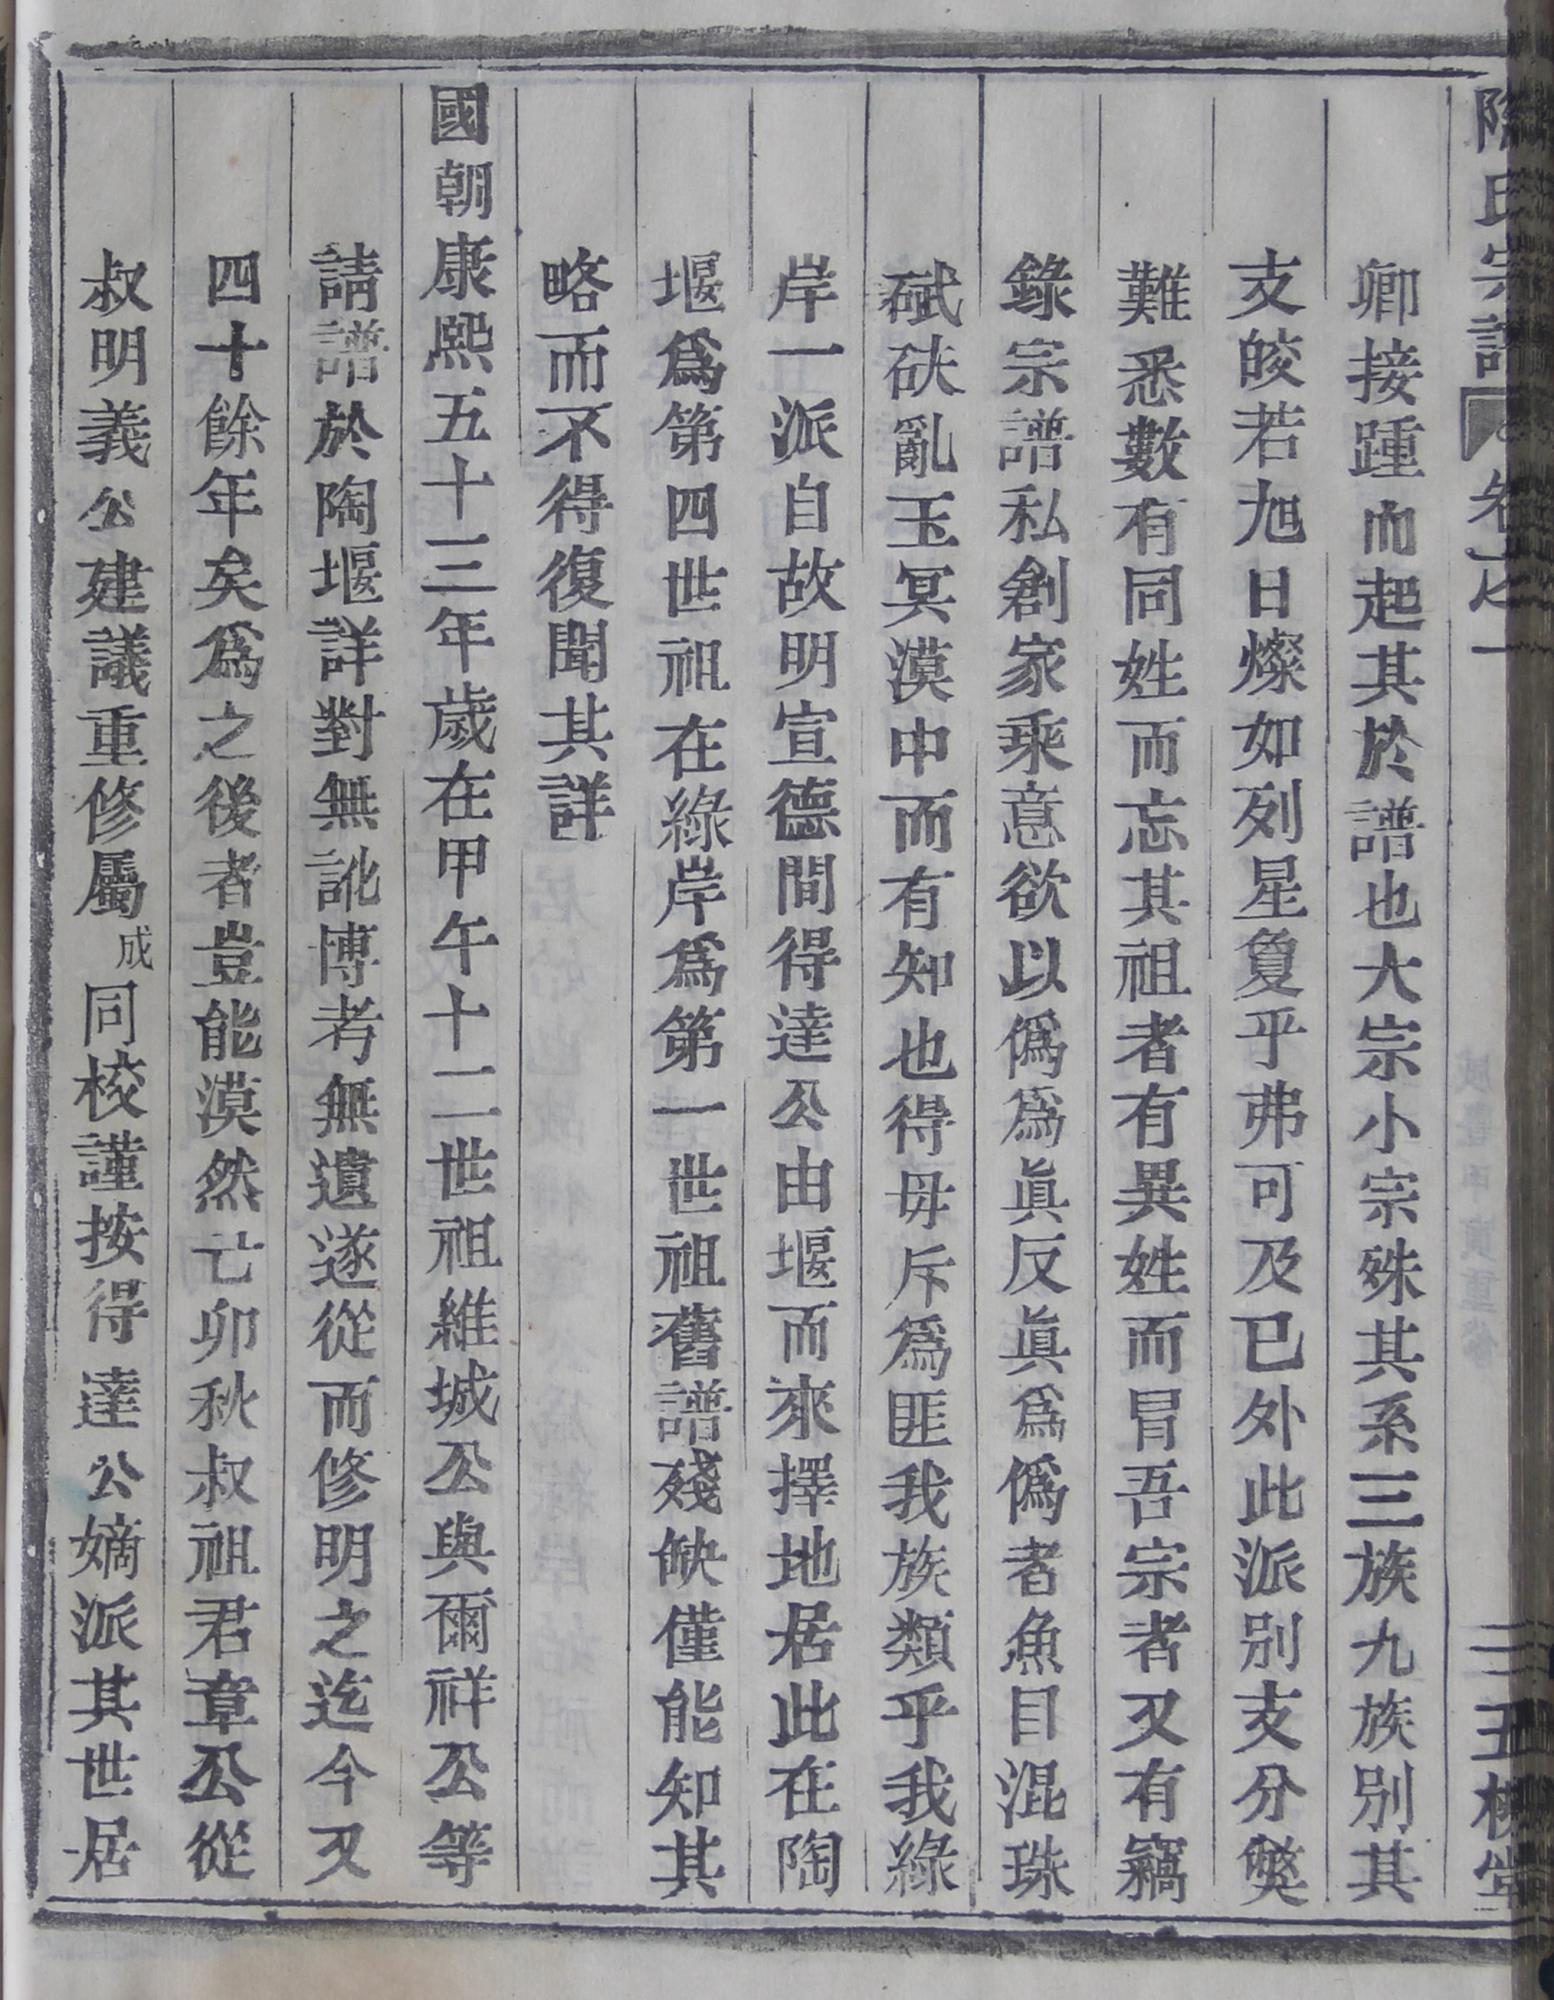 陶氏宗譜 卷之一 三 五柳堂
卿接踵而起其於譜也大宗小宗殊其系三族九族別其
支皎若旭日燦如列星敻乎弗可及已外此派別支分奬
難悉數有同姓而忘其祖者有異姓而冒吾宗者又有竊
錄宗譜私創家乘意欲以僞爲眞反眞爲僞者魚目混珠
碔砆亂玉冥漠中而有知也得毋斥爲匪我族類乎我綠
岸一派自故明宣德間得達公由堰而來擇地居此在陶
堰爲第四世祖在綠岸爲第一世祖舊譜殘缺僅能知其
略而不得復聞其詳
國朝康熙五十三年歲在甲午十二世祖維城公與爾祥公等
請譜於陶堰詳對無訛博考無遺遂從而修明之迄今又
四十餘年矣爲之後者豈能漠然乙卯秋叔祖君章公從
叔明義公建議重修屬成同校謹按得達公嫡派其世居